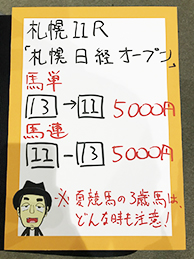 札幌11R
「札幌日経オープン」
馬単
13→11 5000円
馬連
11-13 5000円
※夏競馬の3歳馬は、
どんな時も注意!